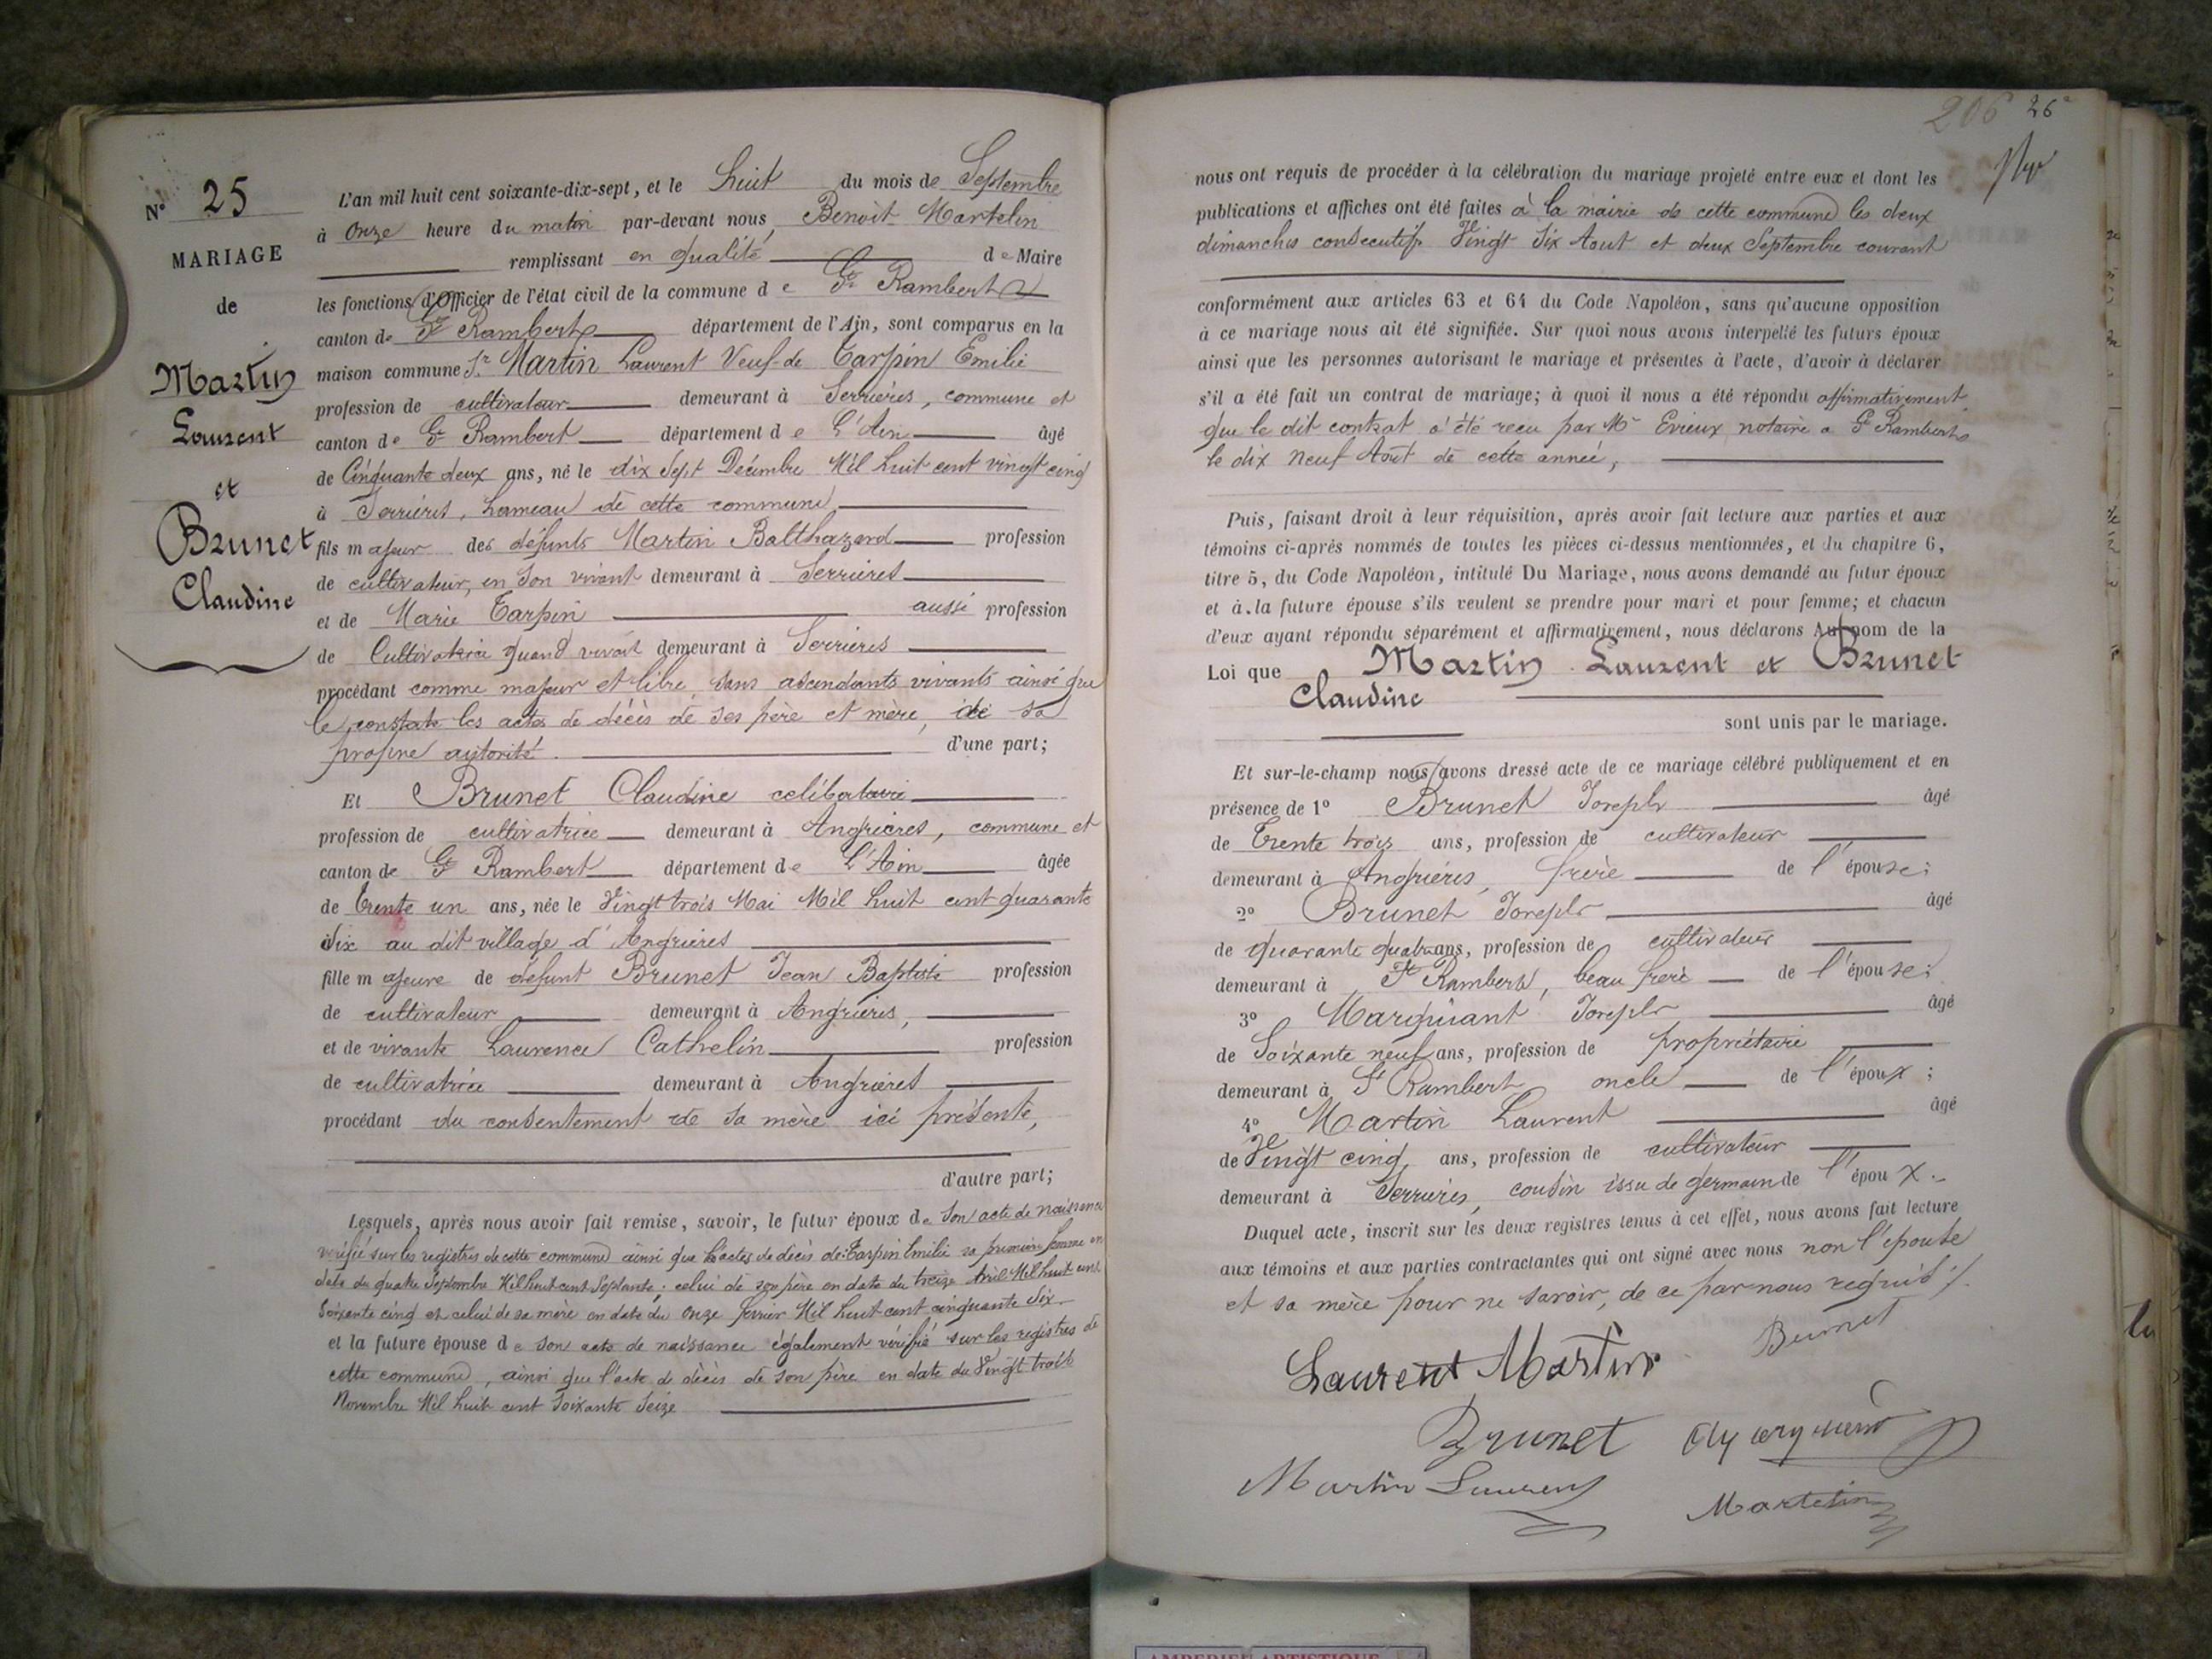 N° 25
MARIAGE
de
Martin
Laurent
et
Brunet
Claudine
L'an mil huit cent soixante-dix-sept, et le huit du mois de Septembre
à Onze heure du matin par-devant nous, Benoit Martelin
remplissant en qualité de Maire
les fonctions d'Officier de l'état civil de la commune de St Rambert
canton de St Rambert département de l'Ain, sont comparus en la
maison commune Sr Martin Laurent Veuf de Tarpin Emilie
profession de cultivateur demeurant à Serrières, commune et
canton de St Rambert département de L'Ain âgé
de Cinquante deux ans, né le dix Sept Décembre Mil huit cent vingt cinq
à Serrières, hameau de cette commune,
fils majeur des défunts Martin Balthazard profession
de cultivateur, en son vivant demeurant à Serrières
et de Marie Tarpin aussi profession
de Cultivatrice quand vivait demeurant à Serrières
procédant comme majeur et libre, sans ascendants vivants ainsi que
le constate les actes de décès de ses père et mère, de sa
propre autorité. d'une part;
Et Brunet Claudine celibataire
profession de cultivatrice demeurant à Angrières, commune et
canton de St Rambert département de L'Ain âgée
de trente un ans, née le Vingt trois Mai Mil huit cent quarante
Six au dit village d'Angrières
fille majeure de défunt Brunet Jean Baptiste profession
de cultivateur demeurant à Angrières,
et de vivante Laurence Cathelin profession
de cultivatrice demeurant à Angrières
procédant du consentement de sa mère ici présente,
d'autre part;
Lesquels, après nous avoir fait remise, savoir, le futur époux de Son acte de naissance
vérifié sur les registres de cette commune ainsi que l'actes de décès de Tarpin Emilie sa première femme en
date du quatre Septembre Mil huit cent Septante; celui de son père en date du treize Avril Mil huit cent
Soixante cinq et celui de sa mère en date du onze février Mil huit cent cinquante Six
et la future épouse de son acte de naissance également vérifié sur les registres de
cette commune, ainsi que l'acte de décès de son père en date du Vingt trois
Novembre Mil huit cent Soixante Seize
206 26
nous ont requis de procéder à la célébration du mariage projeté entre eux et dont les
publications et affiches ont été faites à la mairie de cette commune les deux
dimanches consecutifs Vingt Six Aout et deux Septembre courant
conformément aux articles 63 et 64 du Code Napoléon, sans qu'aucune opposition
à ce mariage nous ait été signifiée. Sur quoi nous avons interpellé les futurs époux
ainsi que les personnes autorisant le mariage et présentes à l'acte, d'avoir à déclarer
s'il a été fait un contrat de mariage; à quoi il nous a été répondu affirmativement
que le dit contrat a été reçu par Me Evieux notaire a St Rambert
le dix neuf Août de cette année,
Puis, faisant droit à leur réquisition, après avoir fait lecture aux parties et aux
témoins ci-après nommés de toutes les pièces ci-dessus mentionnées, et du chapitre 6,
titre 5, du Code Napoléon, intitulé Du Mariage, nous avons demandé au futur époux
et à la future épouse s'ils veulent se prendre pour mari et pour femme; et chacun
d'eux ayant répondu séparément et affirmativement, nous déclarons Au nom de la
Loi que Martin Laurent et Brunet
Claudine
sont unis par le mariage.
Et sur-le-champ nous avons dressé acte de ce mariage célébré publiquement et en
présence de 1° Brunet Joseph âgé
de Trente trois ans, profession de cultivateur
demeurant à Angrières, frère de l'épouse;
2° Brunet Joseph âgé
de quarante quatre ans, profession de cultivateur
demeurant à St Rambert, beau frère de l'épouse;
3° Marquant Joseph âgé
de Soixante neuf ans, profession de propriétaire
demeurant à St Rambert oncle de l'époux;
4° Martin Laurent âgé
de Vingt cinq ans, profession de cultivateur
demeurant à Serrières, cousin issu de germain de l'époux.
Duquel acte, inscrit sur les deux registres tenus à cet effet, nous avons fait lecture
aux témoins et aux parties contractantes qui ont signé avec nous non l'épouse
et sa mère pour ne savoir, de ce par nous requis
Brunet
Laurent Martin
Brunet
Martin Laurent
Martelin
AMBERIEU ARTISTIQUE